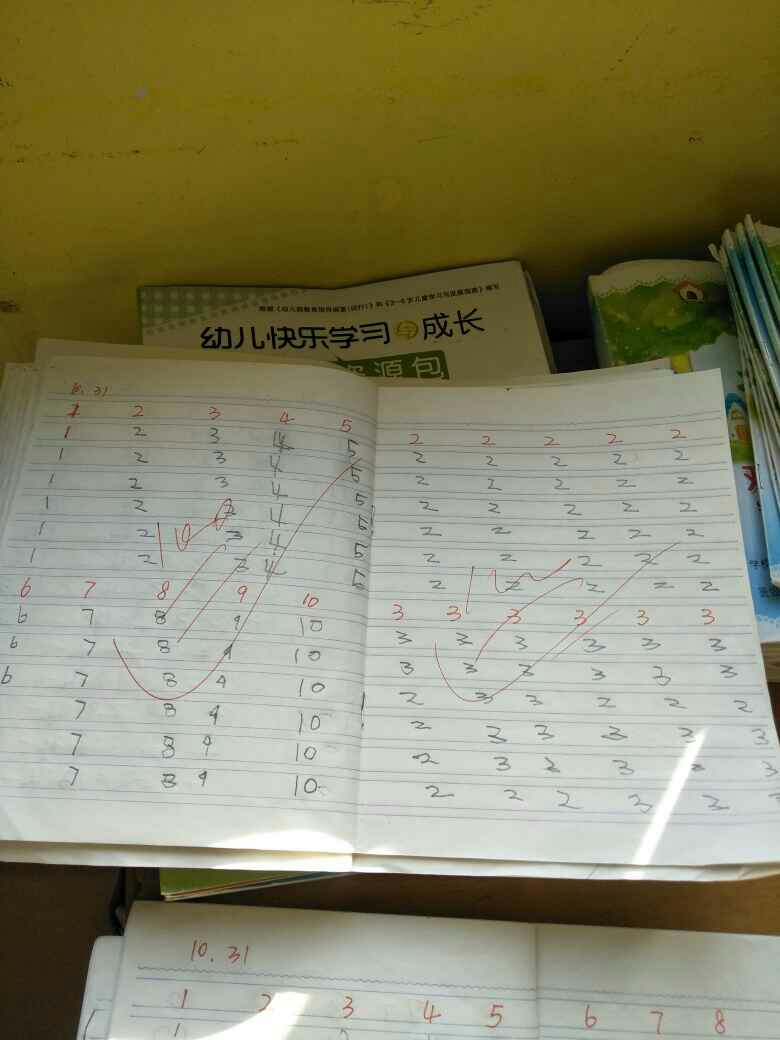 根据《幼儿园教育指导纲要(试行)》和《3-6岁儿童学习与发展指南》编写
幼儿快乐学习与成长
资源包
10.31
1 2 3 4 5
1 2 3 4 5
1 2 3 4 5
1 2 3 4 5
1 2 3 4 5
1 2 3 4 5
1 2 3 4 5
6 7 8 9 10
6 7 8 9 10
6 7 8 9 10
6 7 8 9 10
7 8 9 10
7 8 9 10
7 8 9 10
2 2 2 2 2
2 2 2 2 2
2 2 2 2 2
2 2 2 2 2
2 2 2 2 2
2 2 2 2 2
2 2 2 2 2
3 3 3 3 3 3
3 3 3 3 3 3
3 3 3 3 3 3
2 3 3 2 2 2
2 3 3 3 3 3
2 3 2 3 3
2 2 2 3 3
10.31
1 2 3 4 5 6 7 8
1